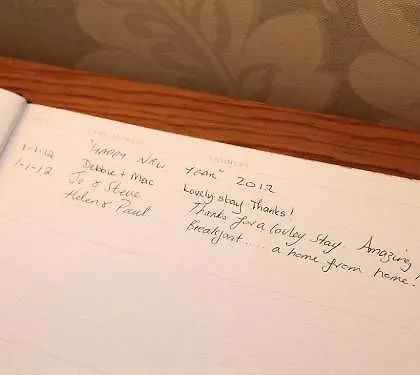 "HAPPY NEW YEAR" 2012
1-1-12 Debbie + Mac Lovely stay Thanks!
1-1-12 Jo & Steve Thanks for a lovley stay. Amazing!
Helen & Paul Breakfast..... a home from home.